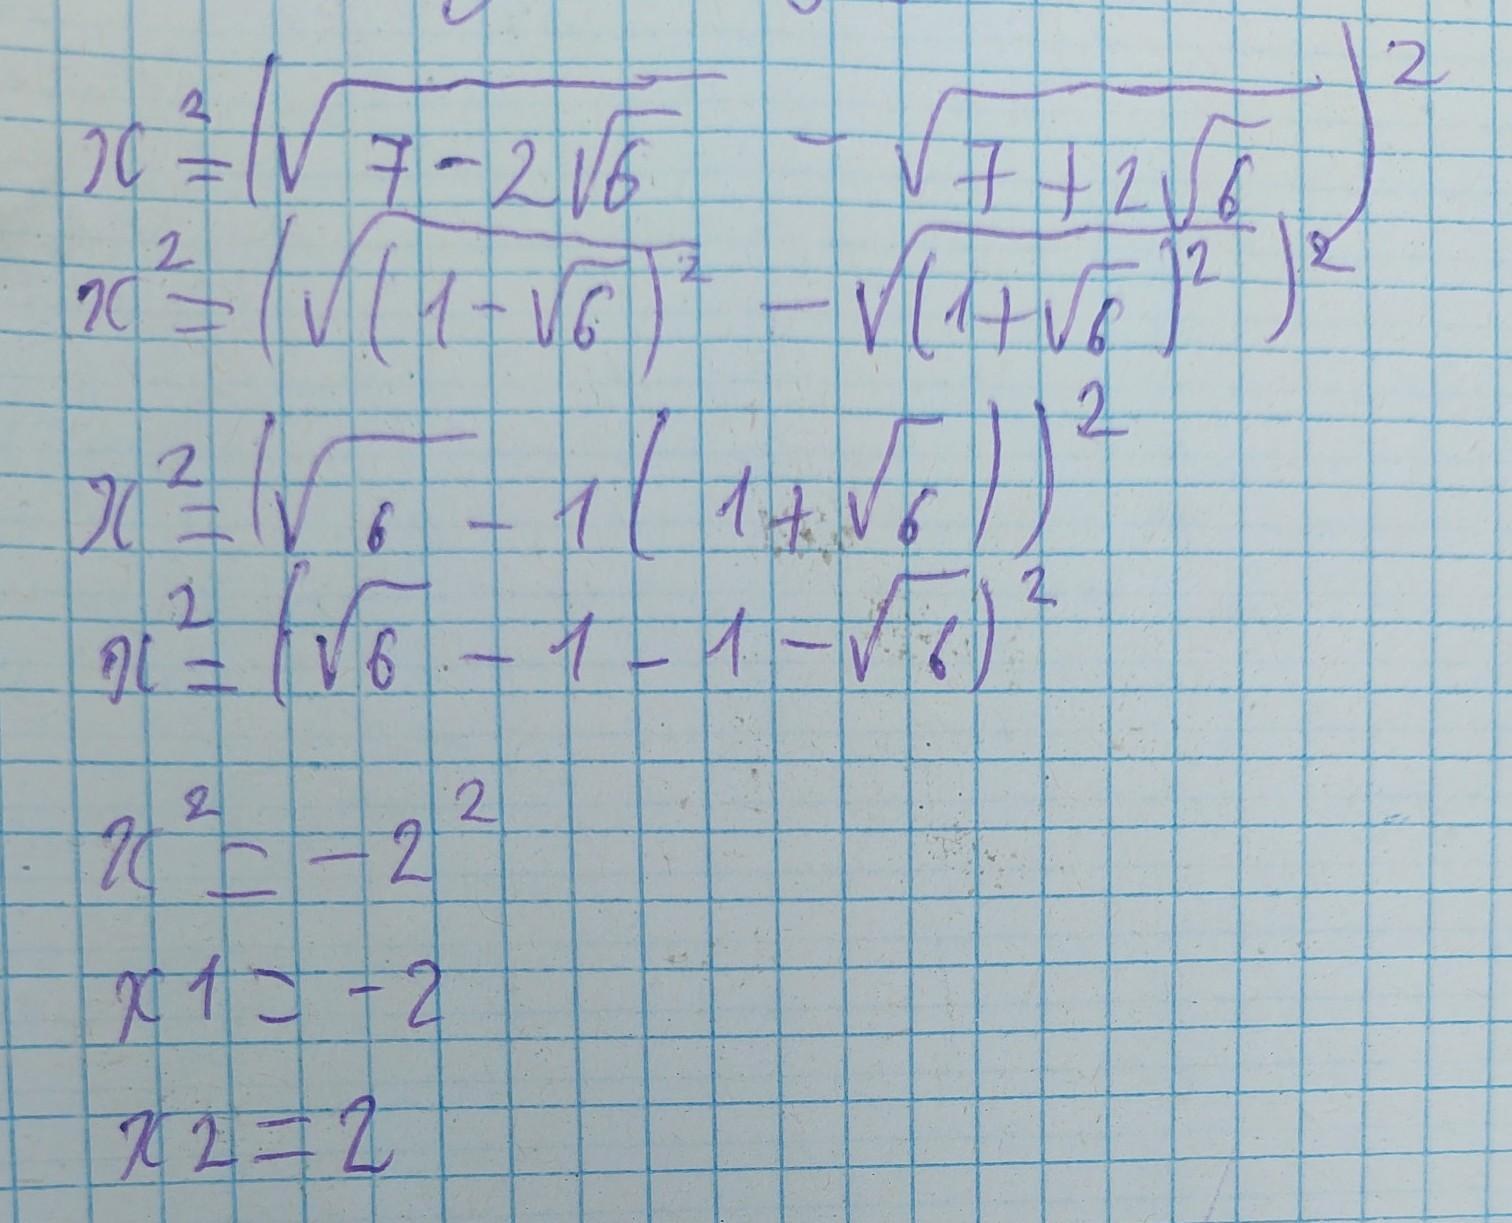 x² = (√(7 - 2√6) - √(7 + 2√6))²
x² = (√(1 - √6)² - √(1 + √6)²)²
x² = (√6 - 1(1 + √6))²
x² = (√6 - 1 - 1 - √6)²
x² = -2²
x1 = -2
x2 = 2